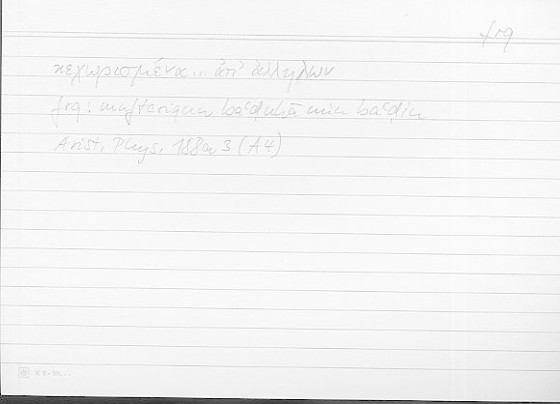 frq
κεχωρισμένα... ἀπ' ἀλλήλων
frq: muftariqan baʿḍuhā min baʿḍin
Arist. Phys. 188a 3 (A4)